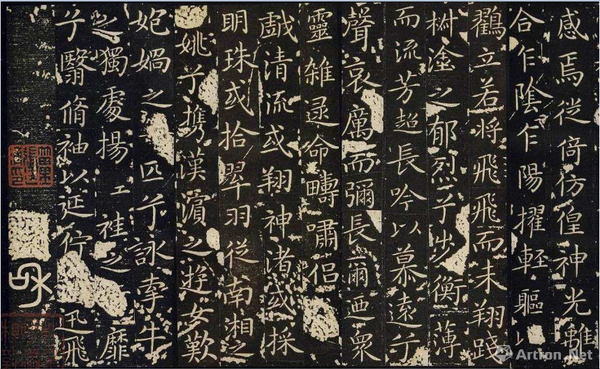 感焉徙倚彷徨神光離
合乍陰乍陽擢輕軀以
鶴立若將飛飛而未翔踐
椒塗之郁烈兮步衡薄
而流芳超長吟以慕遠兮
聲哀厲而彌長爾迺眾
靈雜遝命疇嘯侶
戲清流或翔神渚或採
明珠或拾翠羽從南湘之
姚兮攜漢濱之遊女歎
媧之匹兮詠牽牛
之獨處揚袿之靡
兮翳脩袖以延佇迅飛
Artron.Net